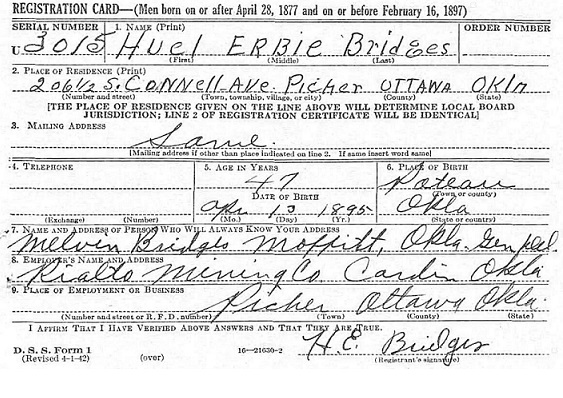 REGISTRATION CARD—(Men born on or after April 28, 1877 and on or before February 16, 1897)
SERIAL NUMBER 1. NAME (Print) ORDER NUMBER
U 3015 HUEl ERBIE BridgEs
(First) (Middle) (Last)
2. PLACE OF RESIDENCE (Print)
206 1/2 S. CONNEll AVE. PichEr OTTAWA OKlA
(Number and street) (Town, township, village, or city) (County) (State)
[THE PLACE OF RESIDENCE GIVEN ON THE LINE ABOVE WILL DETERMINE LOCAL BOARD
JURISDICTION; LINE 2 OF REGISTRATION CERTIFICATE WILL BE IDENTICAL]
3. MAILING ADDRESS
Same.
[Mailing address if other than place indicated on line 2. If same insert word same]
4. TELEPHONE 5. AGE IN YEARS 6. PLACE OF BIRTH
47 Poteau
DATE OF BIRTH (Town or county)
Apr 13 1895 Okla
(Exchange) (Number) (Mo.) (Day) (Yr.) (State or country)
7. NAME AND ADDRESS OF PERSON WHO WILL ALWAYS KNOW YOUR ADDRESS
Melvin Bridges Moffitt, Okla. Gen Del
8. EMPLOYER'S NAME AND ADDRESS
Rialto Mining Co Cardin Okla
9. PLACE OF EMPLOYMENT OR BUSINESS
Picher Ottawa Okla.
(Number and street or R. F. D. number) (Town) (County) (State)
I AFFIRM THAT I HAVE VERIFIED ABOVE ANSWERS AND THAT THEY ARE TRUE.
D. S. S. Form 1
(Revised 4-1-42) (over) 16—21630-2 H. E. Bridges
(Registrant's signature)